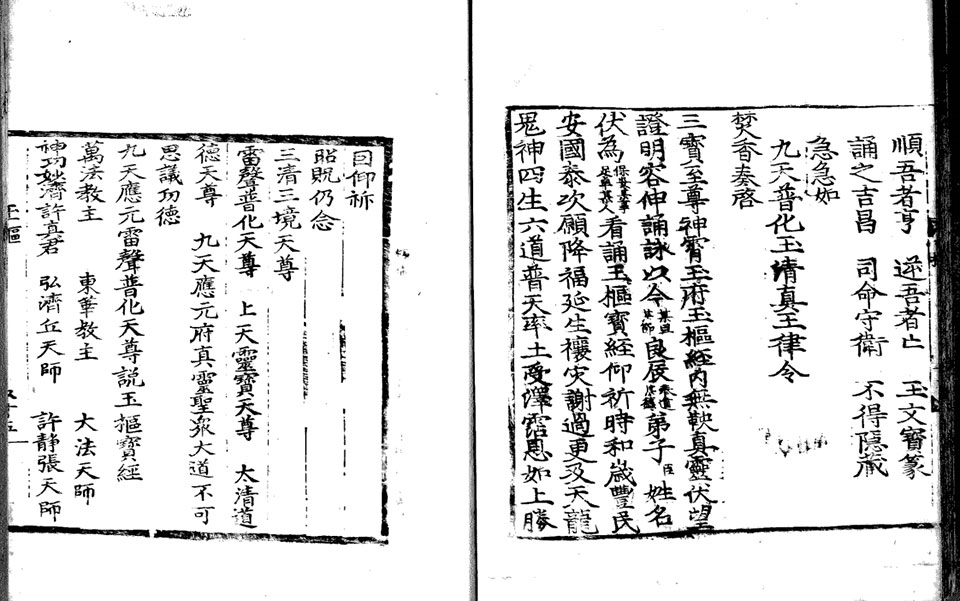 順吾者亨　逆吾者亡　玉文寶篆
誦之吉昌　司命守衛　不得隱藏
急急如
九天普化玉清真王律令
焚香奏啓
三寶至尊神霄玉府玉樞經內無鞅真靈伏望
證明容伸誦詠以今某月某節良辰奉道弟子臣姓名
伏為看誦玉樞寶經仰祈時和歲豐民
安國泰次願降福延生禳灾謝過更及天龍
鬼神四生六道普天率土受澤霑恩如上勝
因仰祈
昭貺仍念
三清三境天尊
雷聲普化天尊　上天靈寶天尊　太清道
德天尊　九天應元府真靈聖衆大道不可
思議功德
九天應元雷聲普化天尊説玉樞寶經
萬法教主　東華教主　大法天師
神功妙濟許真君　弘濟丘天師　許靜張天師
玉樞